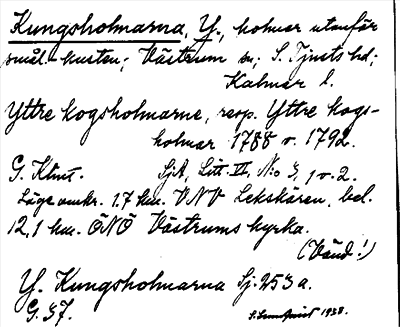 Kungsholmarna, Y., holmar utanför
smål. kusten; Västrum sn; S. Tjusts hd;
Kalmar l.
Yttre kogsholmarne, resp. Yttre kogs-
holmar 1788 o. 1792.
G. Klint. SjA, Litt. VI, No 3, 1 o. 2.
Läge omkr. 1.7 km. VNV Lekskären, bel.
12,1 km. ÖNÖ Västrums kyrka.
(Vänd!)
Y. Kungsholmarna Sj. 253 a.
G. 37. 1938.